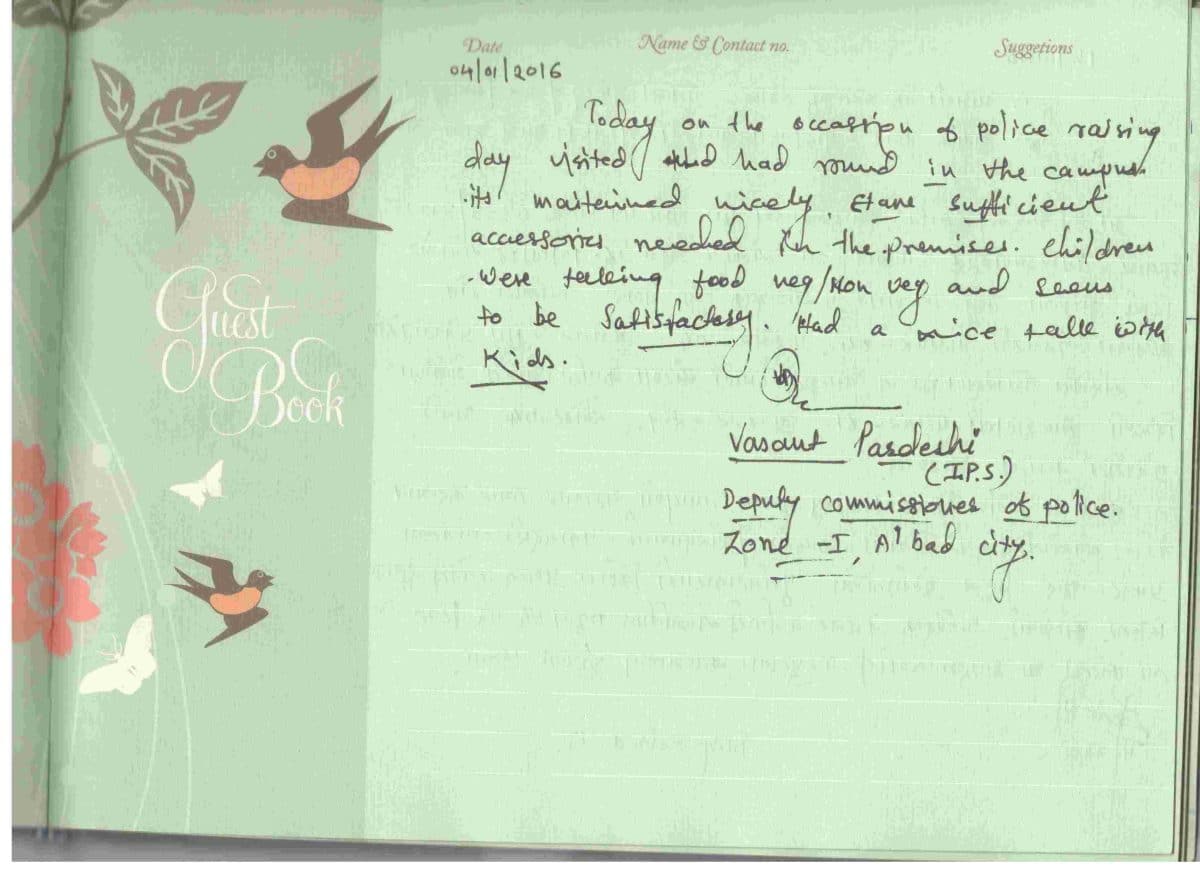 Guest
Book
Date
Name & Contact no.
Suggetions
04/01/2016
Today on the occassion of police raising
day visited and had round in the campus.
its maiteinned nicely. Etane sufficient
accessories needed in the premises. Children
were takeing food veg/Non veg and seems
to be Satisfactory. Had a nice talk with
Kids.
Vasant Pardeshi
(I.P.S.)
Deputy commissioner of police.
Zone -I, A'bad city.